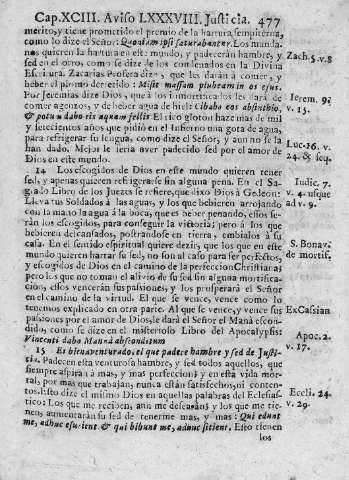 Cap.XCIII. Aviso LXXXVIII. Justicia. 477
merito, y tiene prometido el premio de la hartura sempiterna,
como lo dize el Señor: Quoniam ipsi saturabuntur. Los munda-
nos quieren la hartura en este mundo, y padecerán hambre, y
sed en el otro, como se dize de los condenados en la Divina
Escritura. Zacarias Profeta dize, que les darán à comer, y
beber el plomo derretido: Misit massam plubeam in os ejus.
Por Jeremias dize Dios, que à los inmortificados les dará de
comer agenzos, y de beber agua de hiel: Cibabo eos absinthio,
& potum dabo eis aquam fellis El rico gloton haze mas de mil
y setecientos años que pidió en el Infierno una gota de agua,
para refrigerar su lengua, como dize el Señor, y aun no se la
han dado. Mejor le seria aver padecido sed por el amor de
Dios en este mundo.
14 Los escogidos de Dios en este mundo quieren tener
sed, y apenas quieren refrigerarse sin alguna pena. En el Sa-
grado Libro de los Juezes se refiere, que dixo Dios à Gedeon:
Lleva tus Soldados à las aguas, y los que bebieren arrojando
con la mano la agua à la boca, que es beber penando, essos se-
rán los escogidos, para conseguir la victoria; pero à los que
bebieren descansados, postrandose en tierra, embialos à su
casa. En el sentido espiritual quiere dezir, que los que en este
mundo quieren hartar su sed, no son al caso para ser perfectos,
y escogidos de Dios en el camino de la perfeccion Christiana;
pero los que no toman el alivio de su sed sin alguna mortifica-
cion, essos vencerán sus passiones, y los prosperará el Señor
en el camino de la virtud. El que se vence, vence como lo
tenemos explicado en otra parte. Al que se vence, y vence sus
passiones por el amor de Dios, le dará el Señor el Maná escon-
dido, como se dize en el misterioso Libro del Apocalypsi:
Vincenti dabo Manna absconditum
15 Es bienaventurado, el que padece hambre y sed de Justi-
cia. Padecen esta venturosa hambre, y sed todos aquellos, que
siempre aspiran à mas, y mas perfeccion; y en esta vida mor-
tal, por mas que trabajan, nunca están satisfechos, ni conten-
tos. Esto dize el mismo Dios en aquellas palabras del Eclesias-
tico: Los que me reciben, aun me desearán; y los que me tie-
nen, aumentarán su sed de tenerme mas, y mas: Qui edunt
me, adhuc esurient & qui bibunt me, adhuc sitient. Esto tienen
los
Zach. 5 v. 8
Ierem. 9.
v. 15.
Luc. 16. v.
24. & seq.
Iudic. 7.
v. 4. usque
ad v. 9.
S. Bonav.
de mortif.
Ex Casian
Apoc. 2.
v. 17.
Eccli. 24.
v. 29.